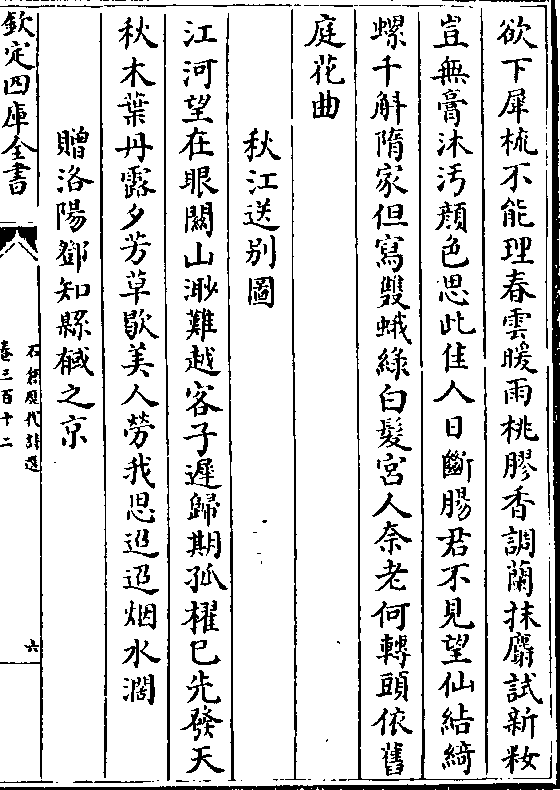 欲下犀梳不能理春雲暖雨桃膠香調蘭抹麝試新妝
豈無膏沐汚顔色思此佳人日斷腸君不見望仙結綺
螺千斛隋家但寫雙蛾綠白髮宮人奈老何轉頭依舊
庭花曲
秋江送别圖
江河望在眼關山渺難越客子遲歸期孤櫂已先發天
秋木葉丹露夕芳草歇美人勞我思迢迢烟水濶
贈洛陽鄧知縣椷之京
欽定四庫全書
石倉歷代詩選
卷三百十二
六